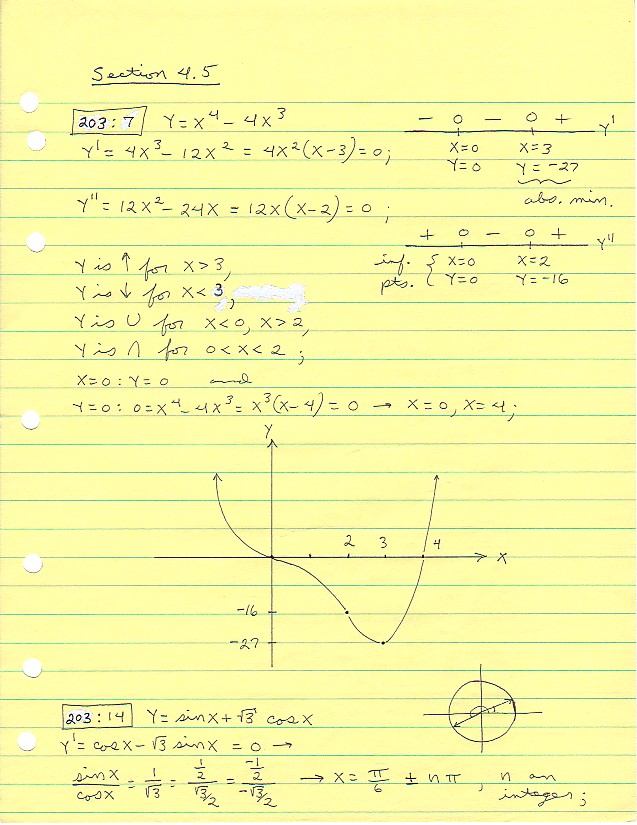 Section 4.5
203:7 Y = X⁴ - 4X³
Y' = 4X³ - 12X² = 4X²(X-3) = 0;
- 0 - 0 + Y'
X=0 X=3
Y=0 Y=-27
abs. min.
Y'' = 12X² - 24X = 12X(X-2) = 0;
+ 0 - 0 + Y''
inf. { X=0 X=2
pts. { Y=0 Y=-16
Y is ↑ for X>3,
Y is ↓ for X<3,
Y is ∪ for X<0, X>2,
Y is ∩ for 0<X<2;
X=0: Y=0 and
Y=0: 0=X⁴-4X³=X³(X-4)=0 → X=0, X=4;
Y
2 3 4 X
-16
-27
203:14 Y = sinX + √3 cosX
Y' = cosX - √3 sinX = 0 →
sinX/cosX = 1/√3 = (1/2)/(√3/2) = (-1/2)/(-√3/2) → X = π/6 ± nπ, n an
integer;